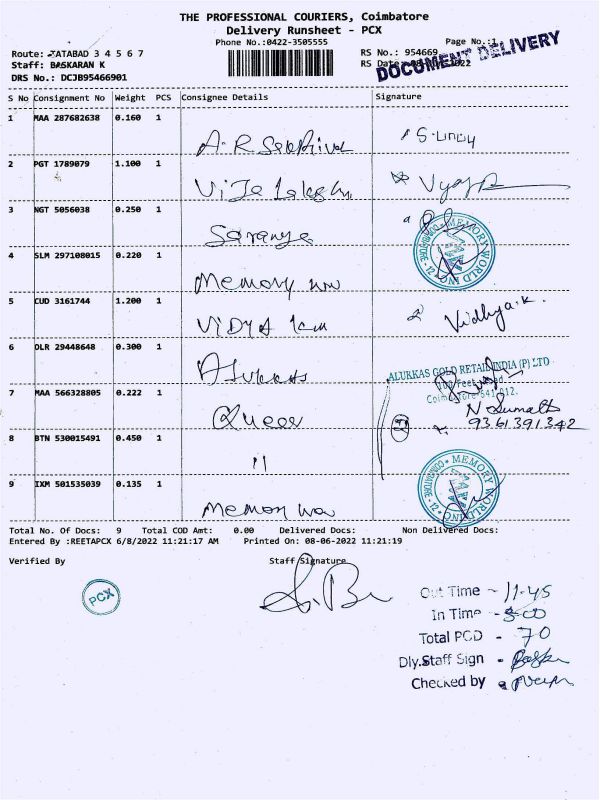 THE PROFESSIONAL COURIERS, Coimbatore
Delivery Runsheet - PCX
Phone No.:0422-3505555
Page No.:1
Route: TATABAD 3 4 5 6 7
RS No.: 954669
Staff: BASKARAN K
RS Date: 2022
DOCUMENT DELIVERY
DRS No.: DCJB95466901
S No Consignment No Weight PCS Consignee Details Signature
1 MAA 287682638 0.160 1 A.R
2 PGT 1789079 1.100 1
3 NGT 5056038 0.250 1 Saranya
MEMORY WORLD COIMBATORE-12
4 SLM 297108015 0.220 1 Memory
5 CUD 3161744 1.200 1 Vidya Vidhya.k.
6 DLR 29448648 0.300 1 Alukkas
ALUKKAS GOLD RETAIL INDIA (P) LTD
100 Feet Road
Coimbatore-641 012.
7 MAA 566328805 0.222 1 Queen N Sumath
9361391342
8 BTN 530015491 0.450 1 11
MEMORY WORLD COIMBATORE-12
9 IXM 501535039 0.135 1 Memory
Total No. Of Docs: 9 Total COD Amt: 0.00 Delivered Docs: Non Delivered Docs:
Entered By :REETAPCX 6/8/2022 11:21:17 AM Printed On: 08-06-2022 11:21:19
Verified By Staff Signature
PCX
Out Time - 11-45
In Time - 5-00
Total POD - 70
Dly.Staff Sign -
Checked by